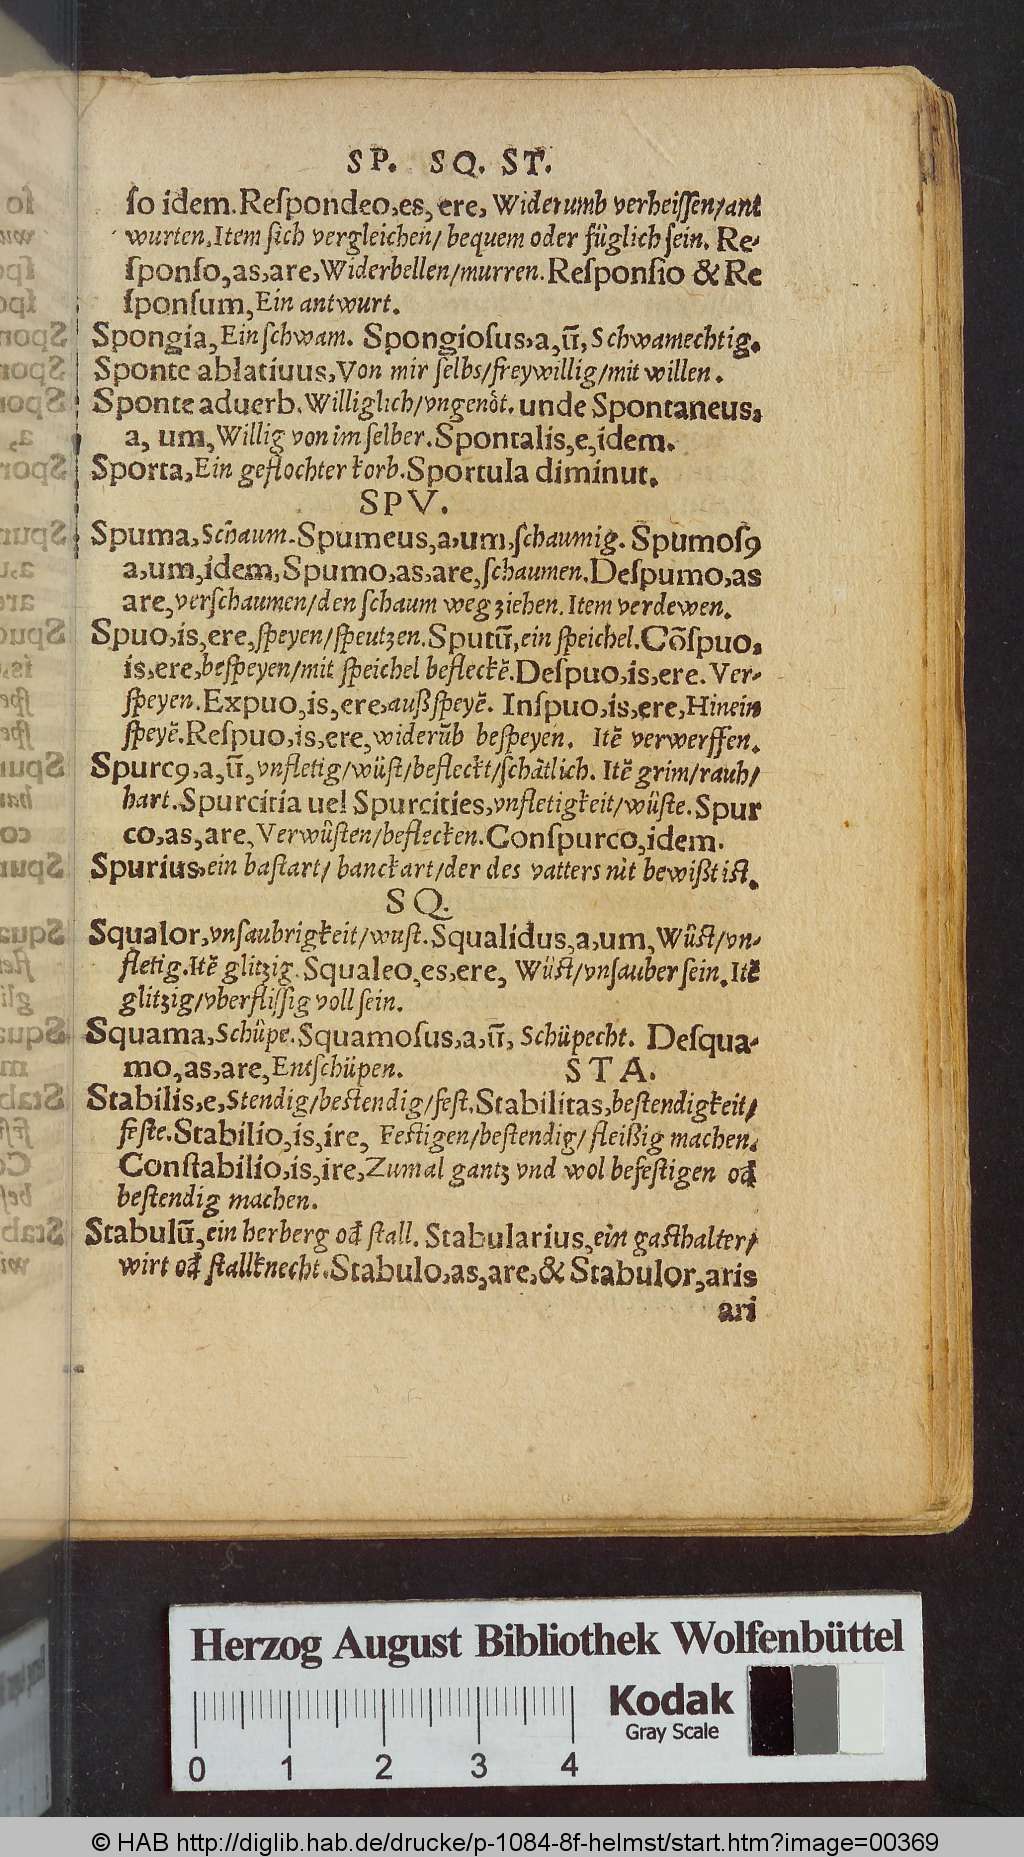 SP. SQ. ST.
ſo idem. Reſpondeo, es, ere, Widerumb verheiſſen/ant
wurten, Item ſich vergleichen/ bequem oder füglich ſein. Re-
ſponſo, as, are, Widerbellen/murren. Reſponſio & Re
ſponſum, Ein antwurt.
Spongia, Ein ſchwam. Spongioſus, a, ū, Schwamechtig.
Sponte ablatiuus, Von mir ſelbs/freywillig/mit willen.
Sponte aduerb. Williglich/vngenöt. unde Spontaneus,
a, um, Willig von im ſelber. Spontalis, e, idem.
Sporta, Ein geflochter korb. Sportula diminut.
SPV.
Spuma, Schaum. Spumeus, a, um, ſchaumig. Spumoſꝯ
a, um, idem, Spumo, as, are, ſchaumen. Deſpumo, as
are, verſchaumen/den ſchaum weg ziehen. Item verdewen.
Spuo, is, ere, ſpeyen/ſpeutzen. Sputū, ein ſpeichel. Cōſpuo,
is, ere, beſpeyen/mit ſpeichel befleckē. Deſpuo, is, ere. Ver-
ſpeyen. Expuo, is, ere, außſpeyē. Inſpuo, is, ere, Hinein
ſpeyē. Reſpuo, is, ere, widerūb beſpeyen. Itē verwerffen.
Spurcꝯ, a, ū, vnfletig/wüſt/befleckt/ſchätlich. Itē grim/rauh/
hart. Spurcitia uel Spurcities, vnfletigkeit/wüſte. Spur
co, as, are, Verwüſten/beflecken. Conſpurco, idem.
Spurius, ein baſtart/ banckart/der des vatters nit bewißt iſt.
SQ.
Squalor, vnſaubrigkeit/wuſt. Squalidus, a, um, Wüſt/vn-
fletig. Itē glitzig. Squaleo, es, ere, Wüſt/vnſauber ſein. Itē
glitzig/vberfliſſig voll ſein.
Squama, Schüpe. Squamoſus, a, ū, Schüpecht. Deſqua-
mo, as, are, Entſchüpen. STA.
Stabilis, e, Stendig/beſtendig/feſt. Stabilitas, beſtendigkeit/
feſte. Stabilio, is, ire, Feſtigen/beſtendig/ fleißig machen.
Conſtabilio, is, ire, Zumal gantz vnd wol befeſtigen od
beſtendig machen.
Stabulū, ein herberg od ſtall. Stabularius, ein gaſthalter/
wirt od ſtallknecht. Stabulo, as, are, & Stabulor, aris
ari
Herzog August Bibliothek Wolfenbüttel
Kodak
Gray Scale
0 1 2 3 4
© HAB http://diglib.hab.de/drucke/p-1084-8f-helmst/start.htm?image=00369